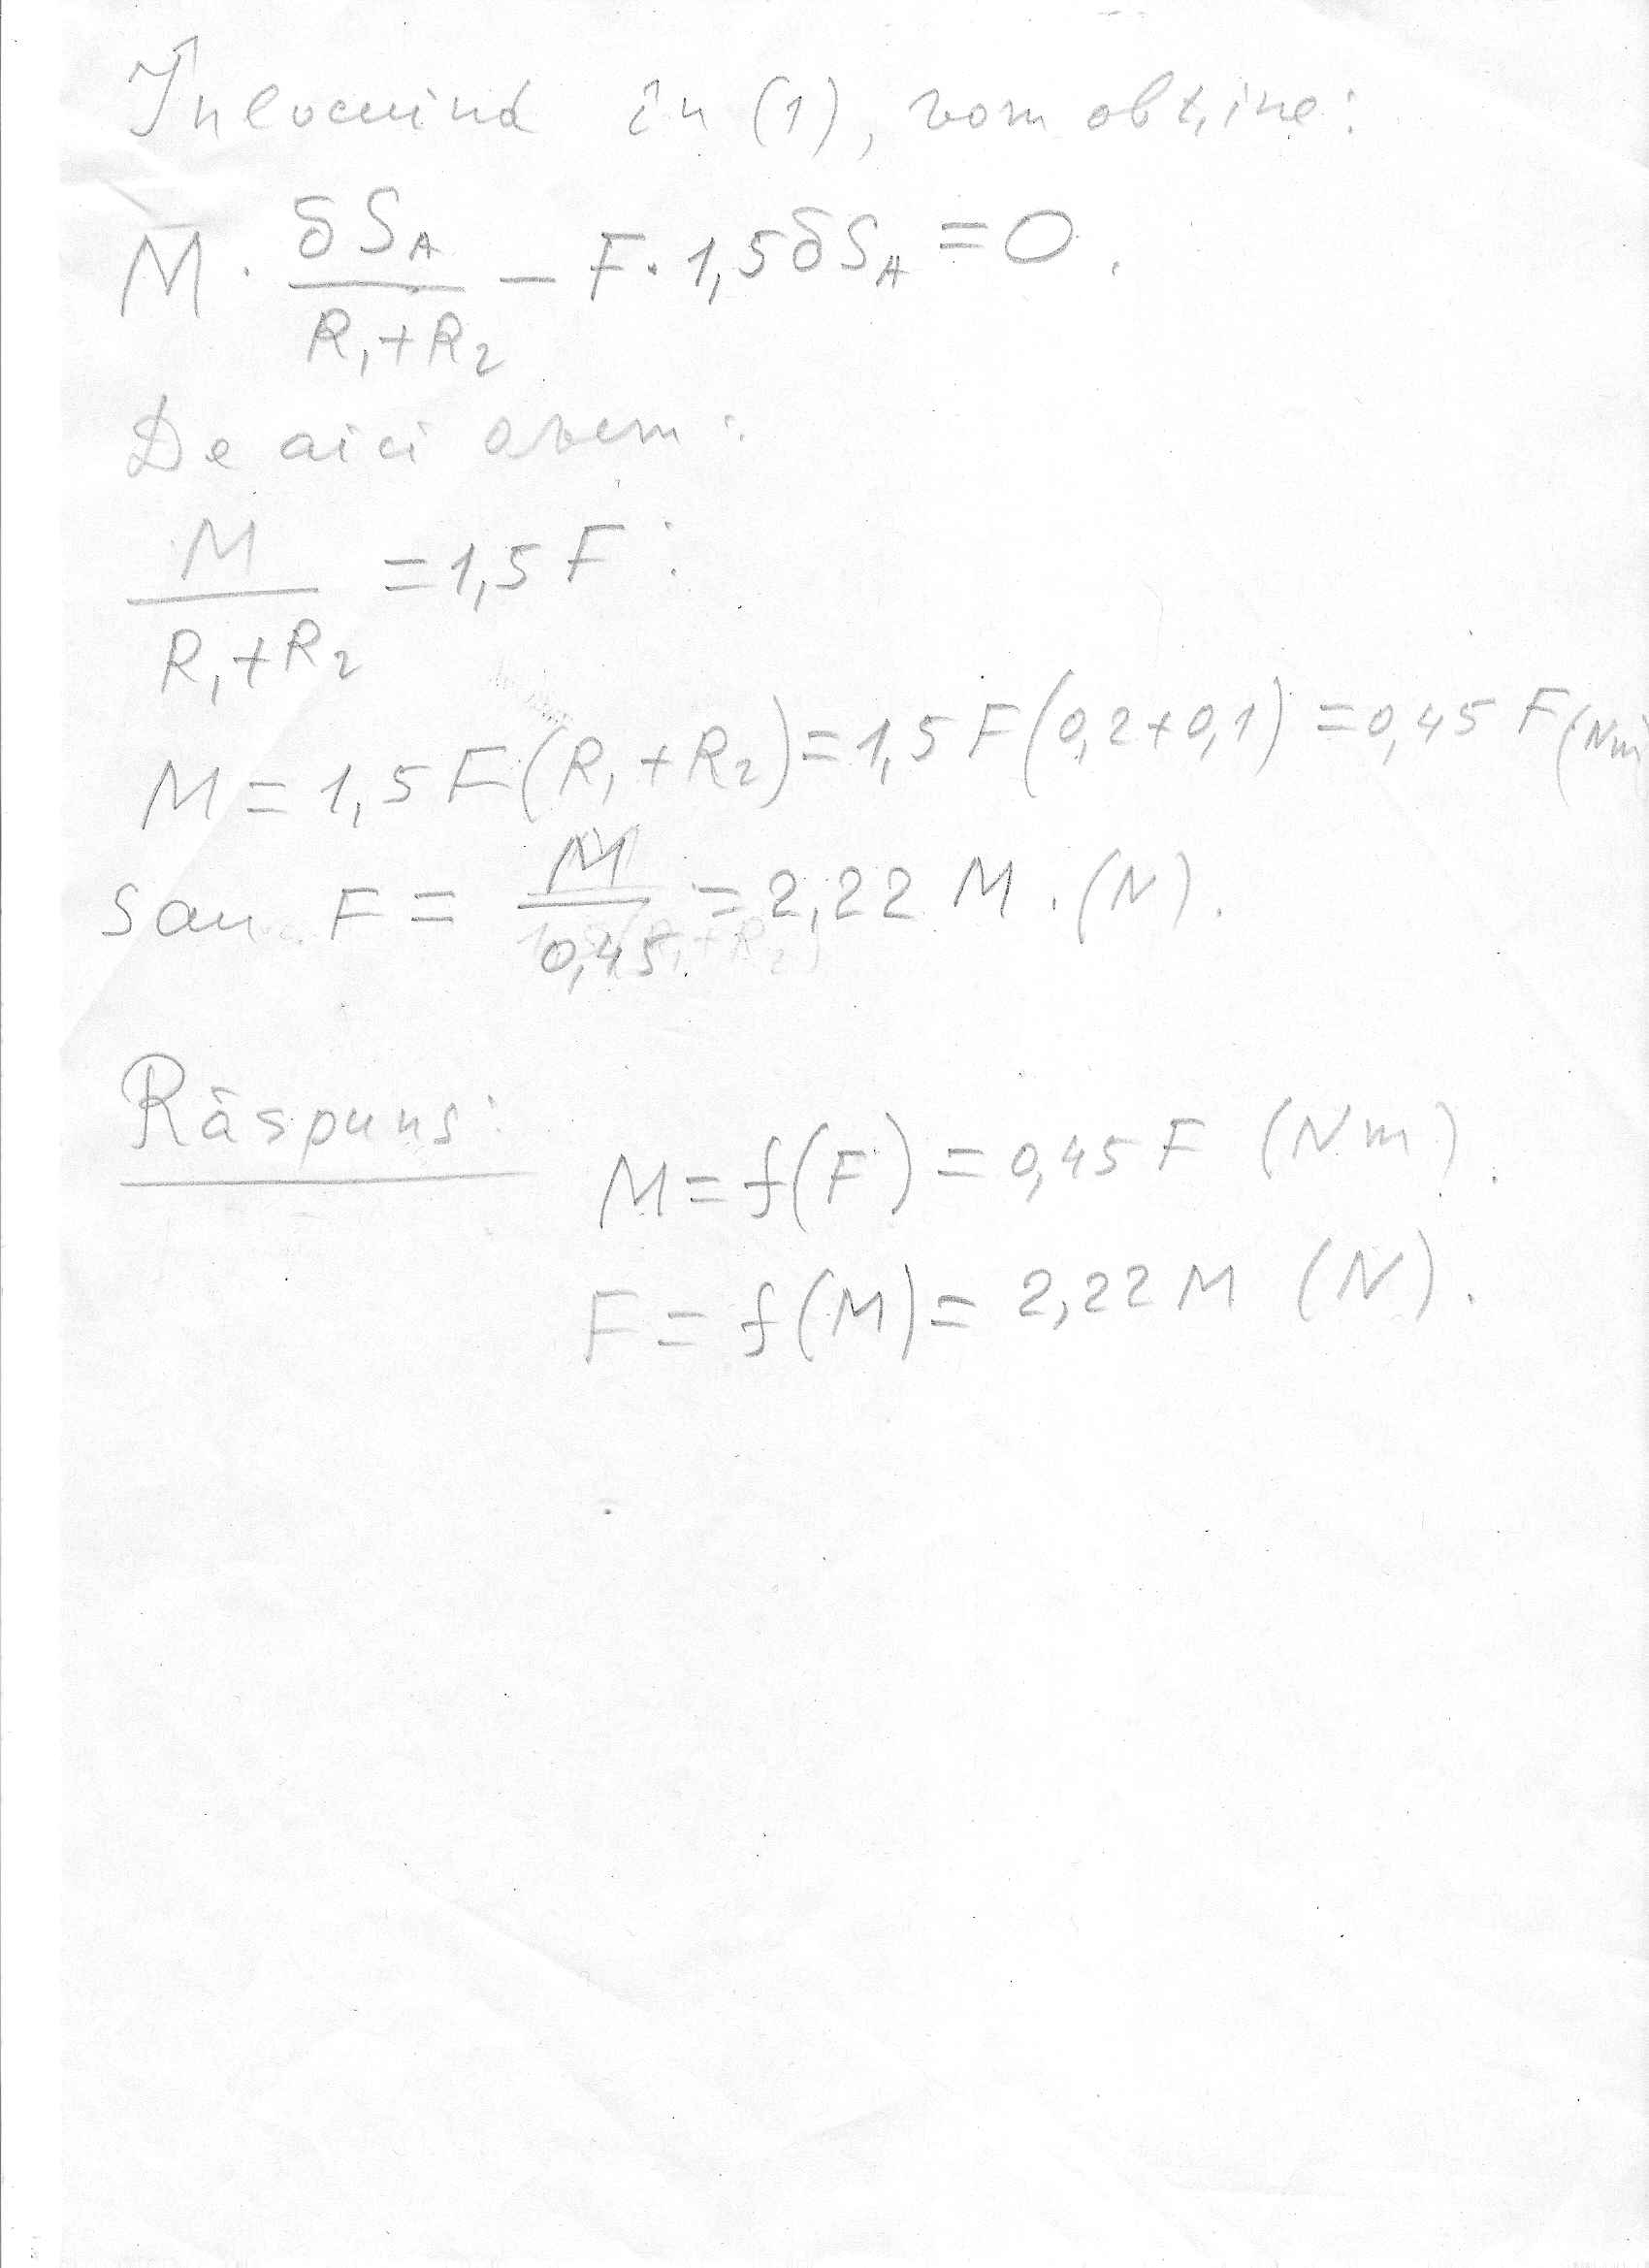 Înlocuind în (1), vom obține:
M · δS_A / (R₁+R₂) − F · 1,5 δS_A = 0.
De aici avem:
M / (R₁+R₂) = 1,5 F:
M = 1,5 F (R₁+R₂) = 1,5 F (0,2+0,1) = 0,45 F (Nm)
sau F = M / 0,45 = 2,22 M. (N).
Răspuns: M = f(F) = 0,45 F (Nm).
F = f(M) = 2,22 M (N).